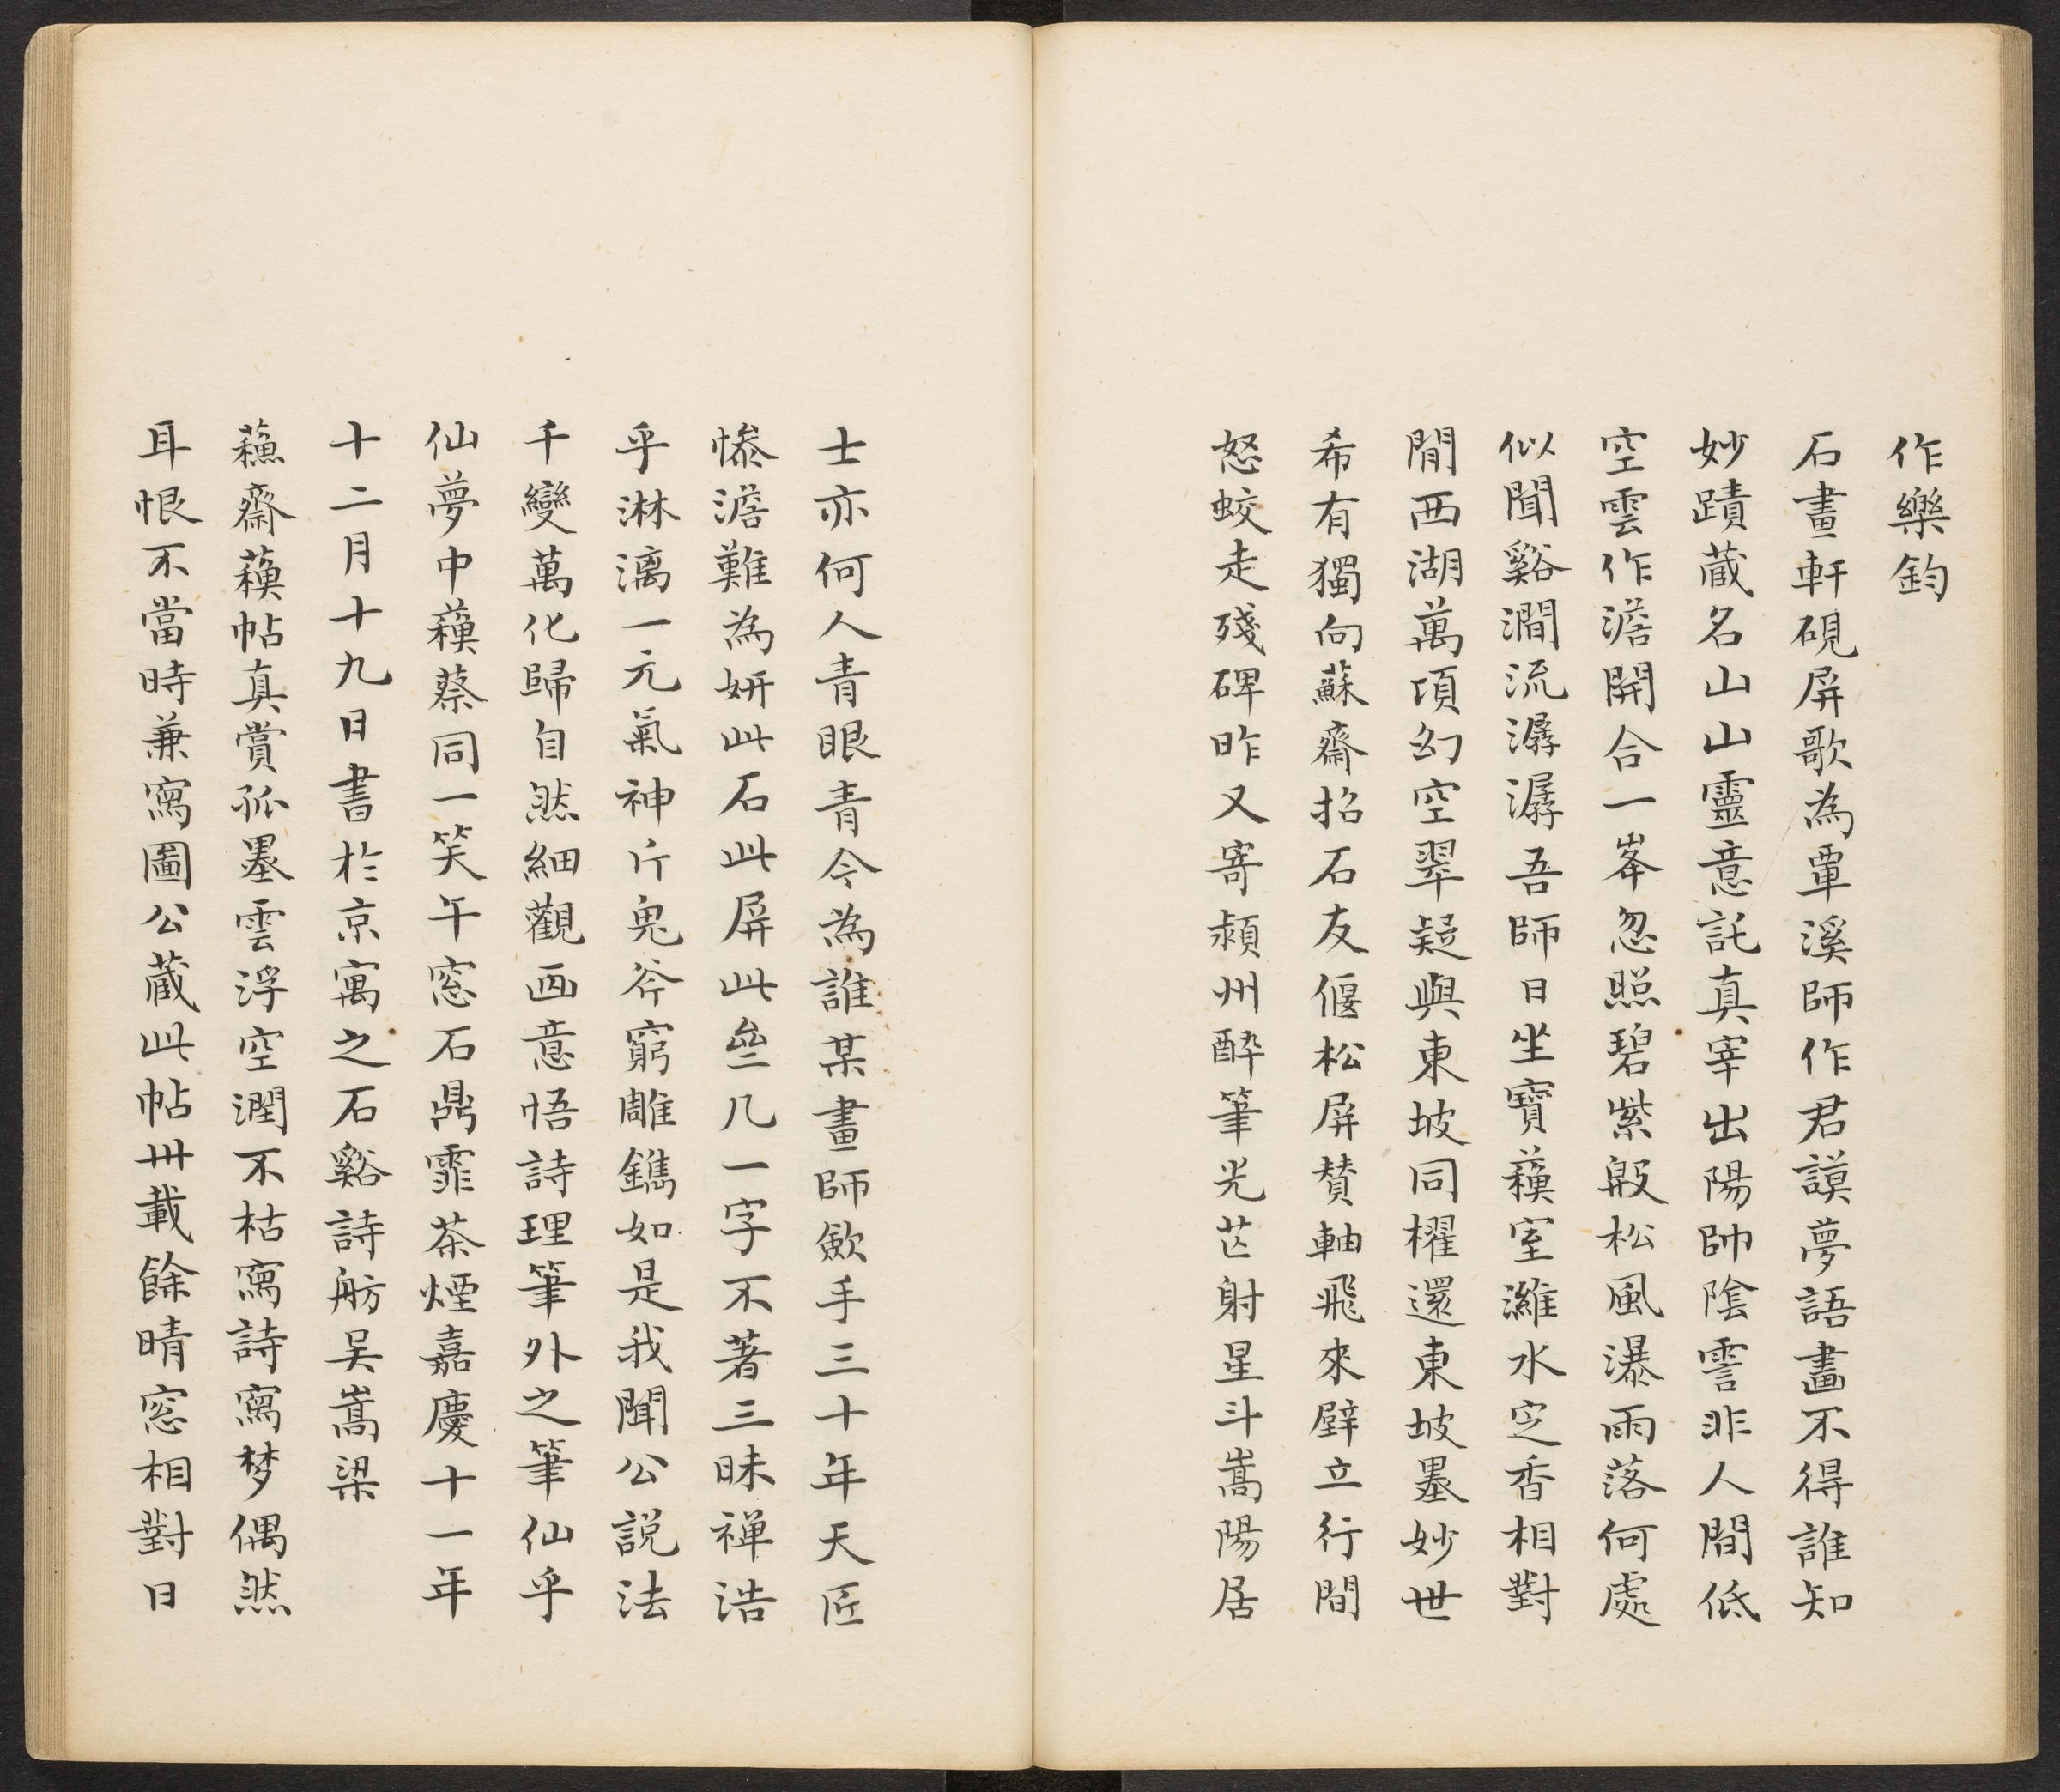 作樂鈞
石畫軒硯屏歌為覃溪師作君謨夢語畫不得誰知
妙蹟蔵名山山靈意託真宰出陽帥陰霻非人間低
空雲作澹開合一峯忽照碧紫殷松風瀑雨落何處
似聞谿澗流潺潺吾師日坐寶蘓室濰水空香相對
閒西湖萬頃幻空翠疑與東坡同櫂還東坡墨妙世
希有獨向蘇齋招石友偃松屏贊軸飛來壁立行間
怒蛟走殘碑昨又寄潁州酔筆光芒射星斗嵩陽居
士亦何人青眼青今為誰某畫師歛手三十年天匠
慘澹難為妍此石此屏此壘几一字不著三昧禅浩
乎淋漓一元氣神斤鬼斧窮雕鐫如是我聞公説法
千變萬化歸自然細觀画意悟詩理筆外之筆仙乎
仙夢中蘓蔡同一笑午窓石鼎霏茶煙嘉慶十一年
十二月十九日書於京寓之石谿詩舫吴嵩梁
蘓齋蘓帖真賞孤墨雲浮空潤不枯寫詩寫梦偶然
耳恨不當時兼寫圖公蔵此帖卅載餘晴窓相對日